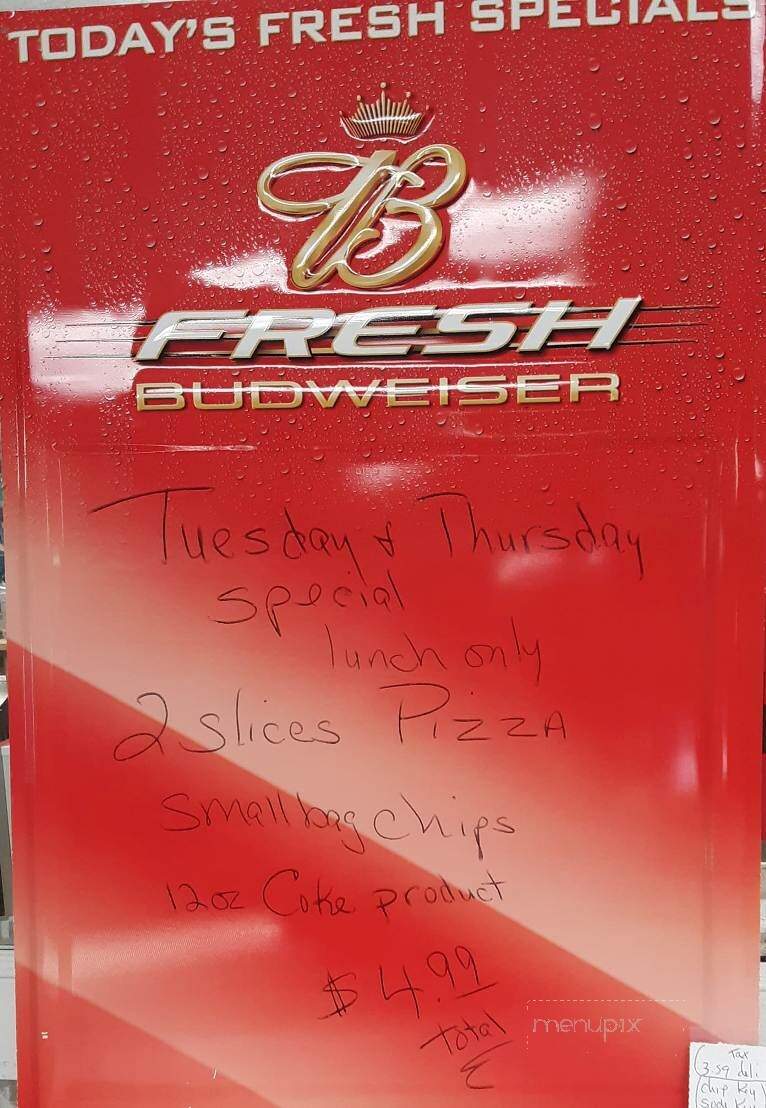 TODAY'S FRESH SPECIALS
B
FRESH
BUDWEISER
Tuesday & Thursday
special
lunch only
2 slices Pizza
small bag chips
12oz Coke product
$4.99
total
menupix
Tax
3.59 deli
chip key